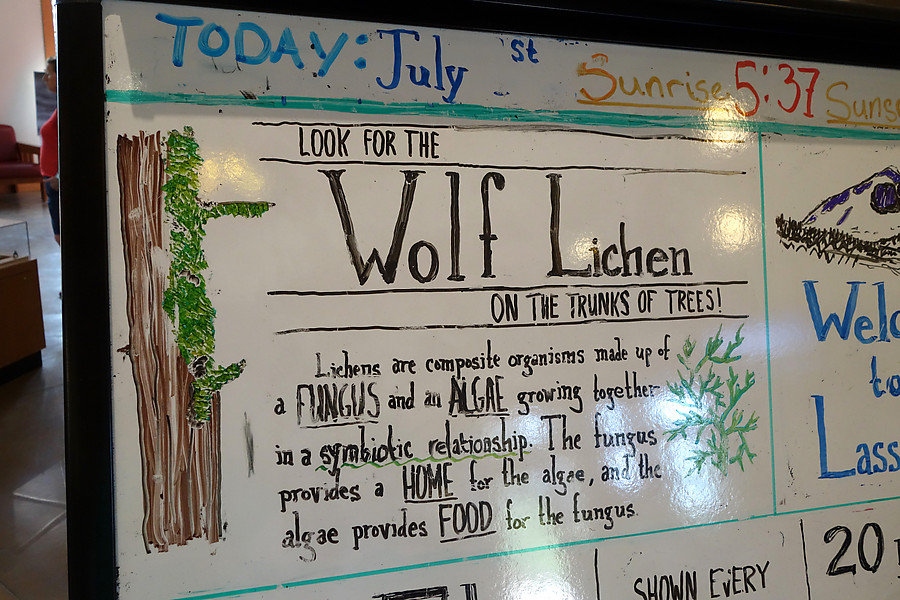 TODAY: July st
Sunrise 5:37
LOOK FOR THE
Wolf Lichen
ON THE TRUNKS OF TREES!
Lichens are composite organisms made up of
a FUNGUS and an ALGAE growing together
in a symbiotic relationship. The fungus
provides a HOME for the algae, and the
algae provides FOOD for the fungus.
to
20
SHOWN EVERY